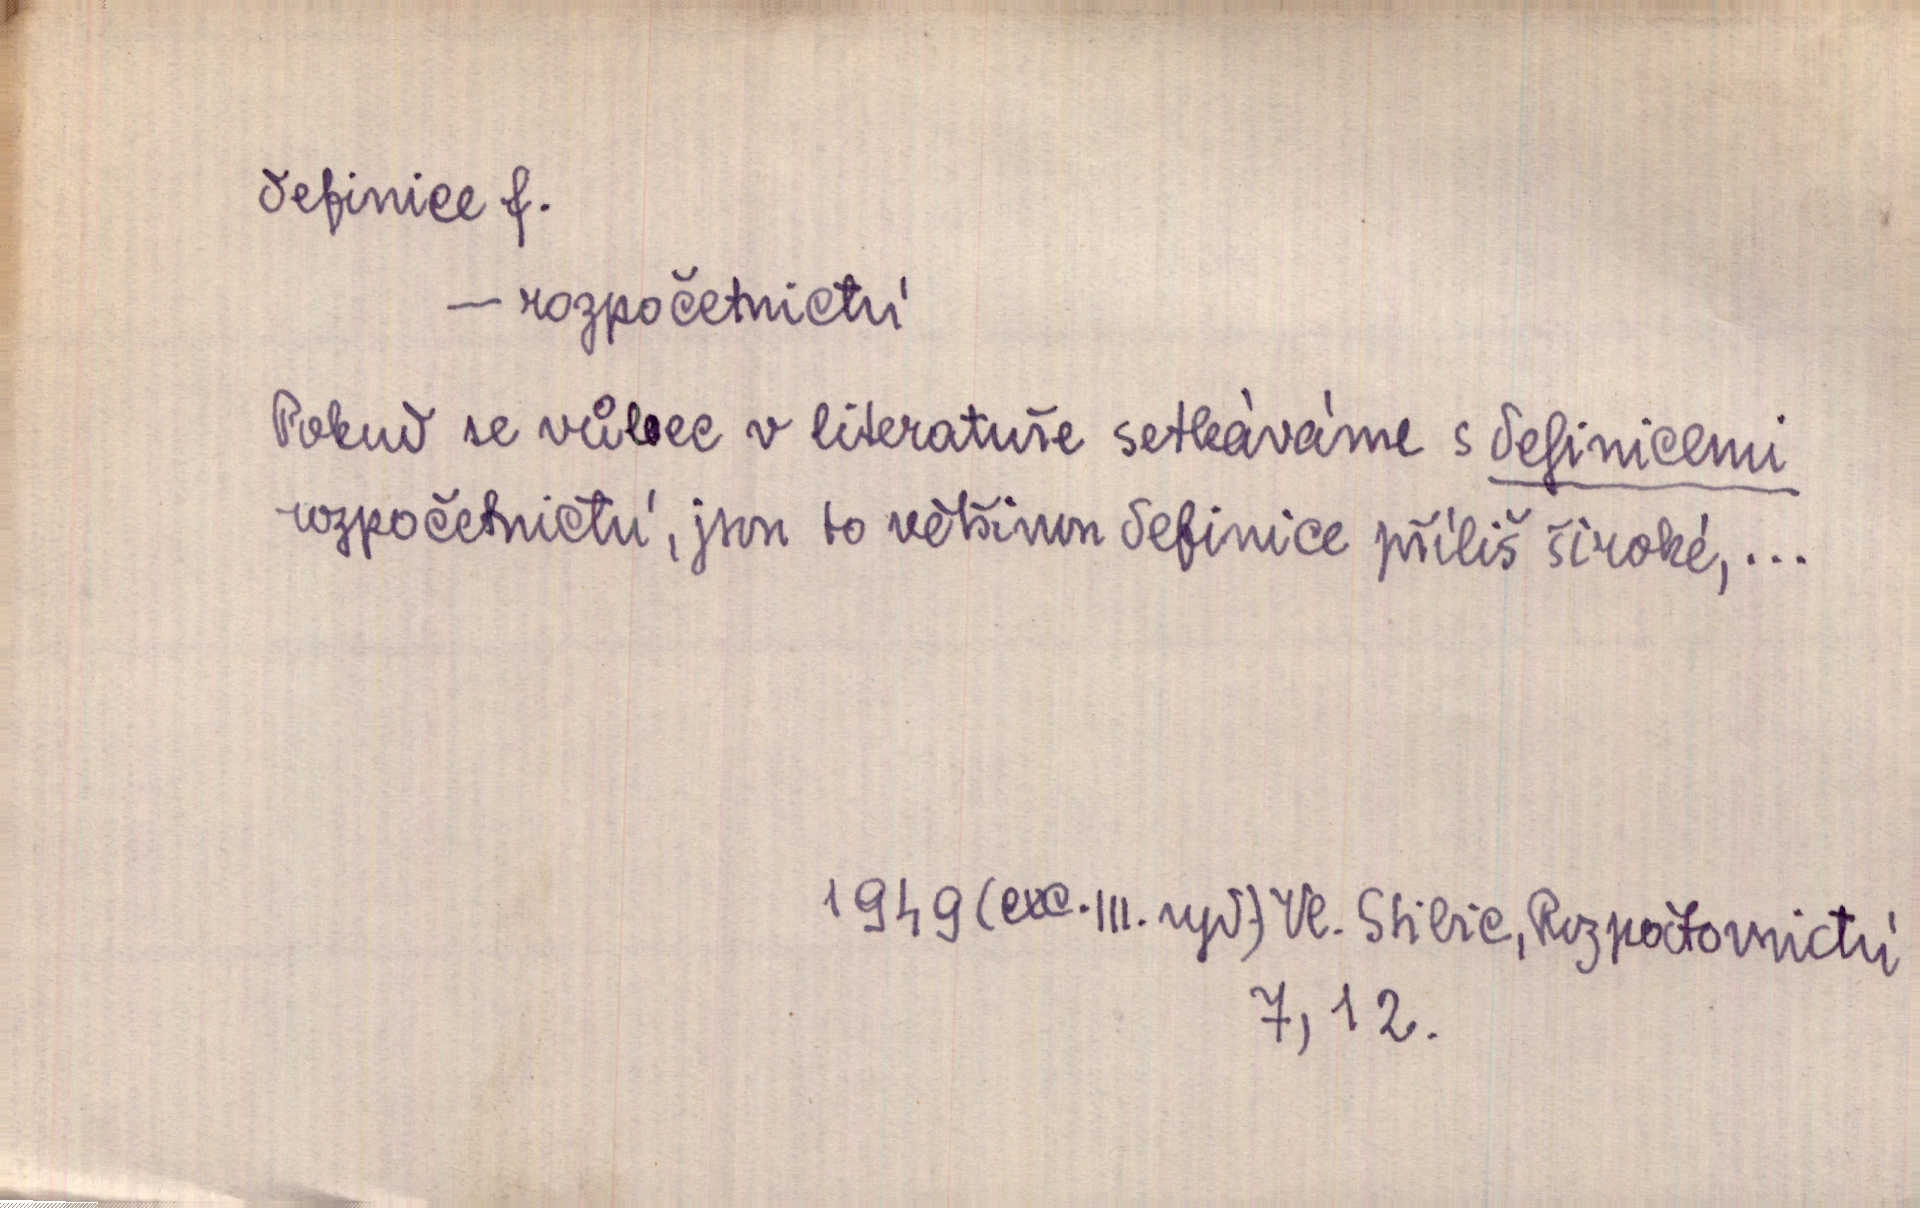 definice f.
— rozpočetnictví
Pokud se vůbec v literatuře setkáváme s definicemi
rozpočetnictví, jsou to většinou definice příliš široké, ...
1949 (exc. III. vyd.) Vl. Stibic, Rozpočtovnictví
7, 12.